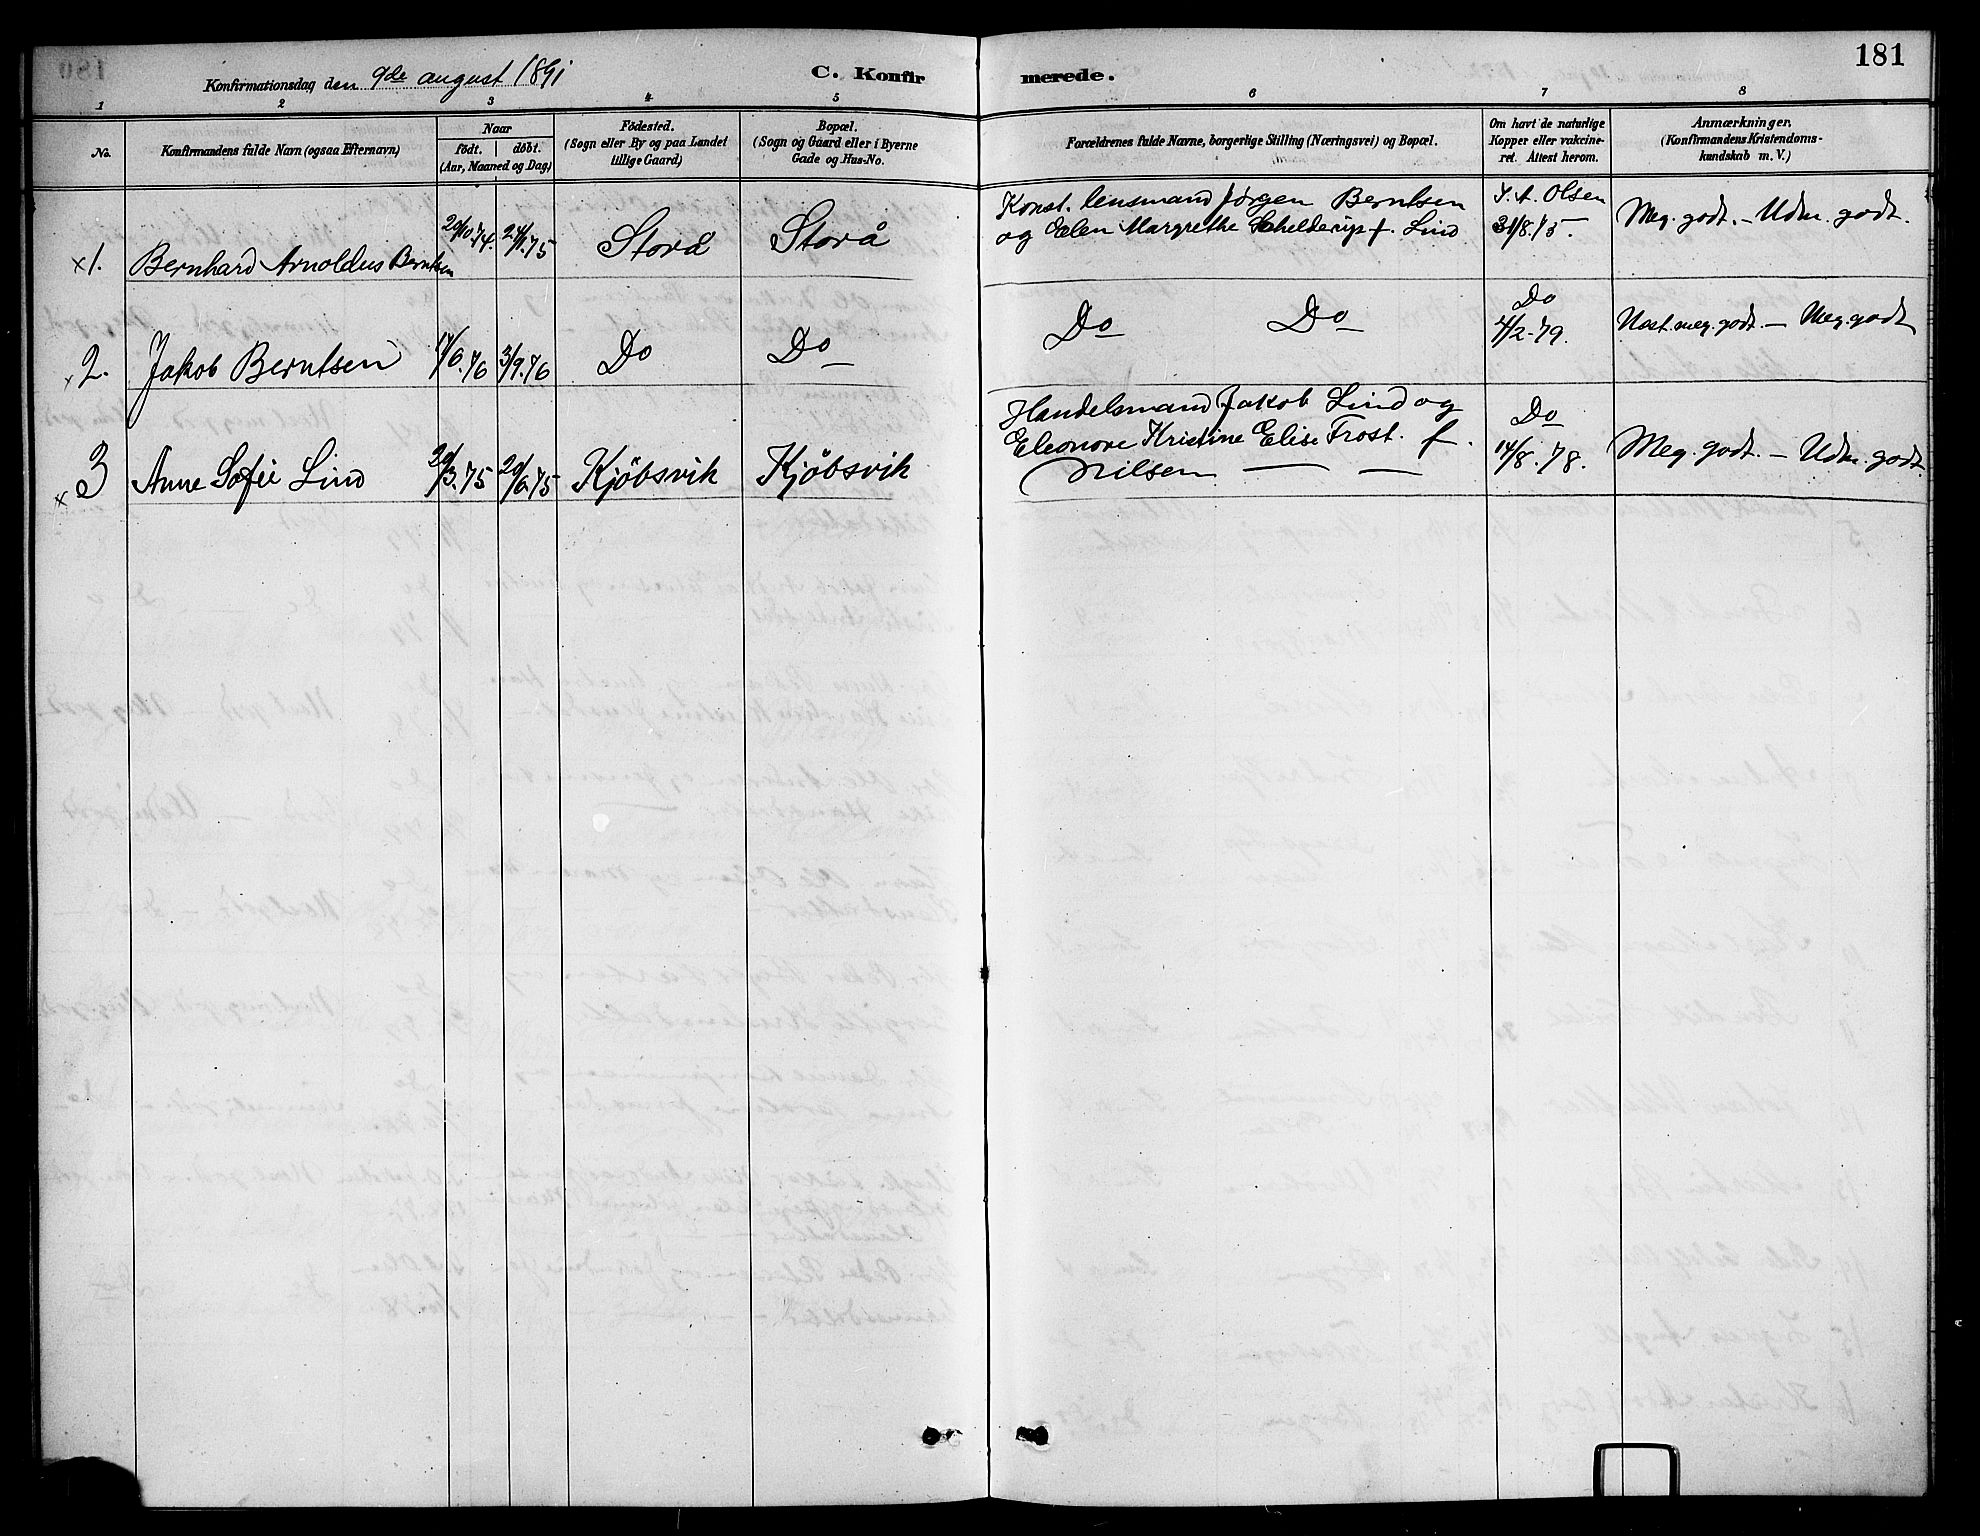 181
Konfirmationsdag den 9de august 1891
C. Konfirmerede.
1 2 3 4 5 6 7 8
No.
Konfirmandens fulde Navn (ogsaa Efternavn)
Naar
födt. döbt.
(Aar, Maaned og Dag)
Födested.
(Sogn eller By og paa Landet
tillige Gaard)
Bopæl.
(Sogn og Gaard eller i Byerne
Gade og Hus-No.
Forældrenes fulde Navne, borgerlige Stilling (Næringsvei) og Bopæl.
Om havt de naturlige
Kopper eller vakcine-
ret. Attest herom.
Anmærkninger.
(Konfirmandens Kristendoms-
kundskab m. V.)
x 1. Bernhard Arnoldus Berntsen 29/10.74. 24/1.75 Storå Storå
Konst. lensmand Jørgen Berntsen
og Elen Margrethe Schelderup f. Lind
S. A. Olsen
31/8.75.
Meg. godt. – Udm. godt.
x 2. Jakob Berntsen 3/9.76 Do Do
Do Do
Do
4/2.79.
Nost. meg. godt. – Meg. godt
x 3 Anne Sofie Lind 20/3.75 20/6.75 Kjöbsvik Kjöbsvik
Handelsmand Jakob Lind og
Eleonore Kristine Elise Frost. f.
Nilsen
Do
14/8.78.
Meg. godt. – Udm. godt.